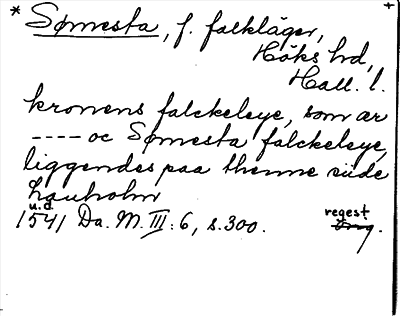 * Sømesta, f. falkläger, +
Höks hd,
Hall. l.
kronens falckeleye, som ær
---- oc Sømesta falckeleye,
liggendes paa thenne siide
Lauholm
u.d. regest
1541 Da. M. III: 6, s. 300.